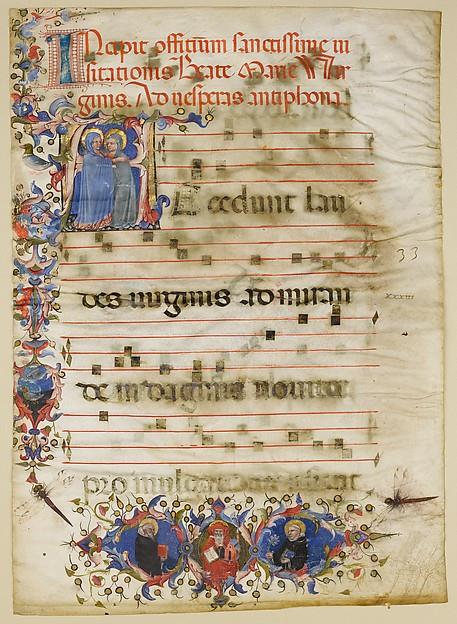 INcipit officium sanctissime ui
sitationis Beate Marie Vir
ginis. Ad uesperas antiphona.
Accedunt lau
33
des uirginis admiran
xxxiii
de indaginis nouiter